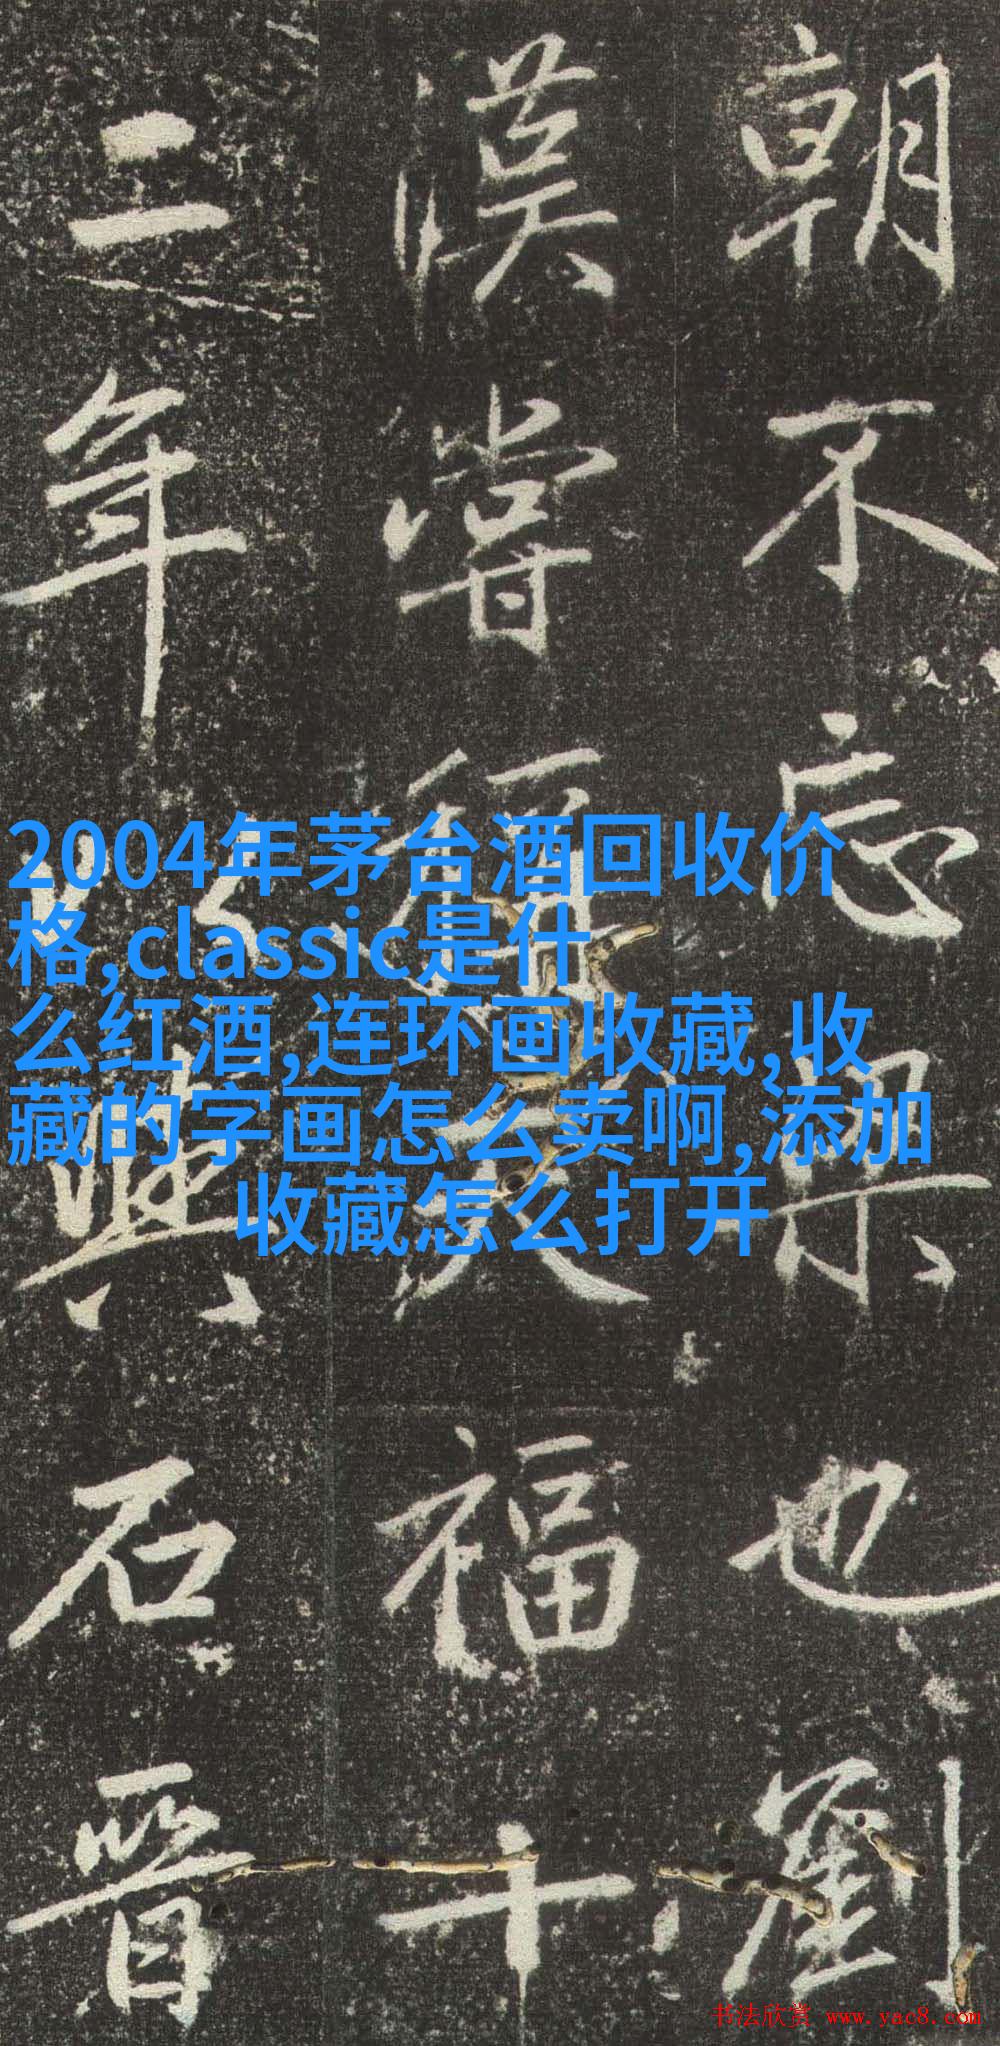 朝不忘也劉
漢嘗福十
二年以與石晉
2004年茅台酒回收价
格,classic是什
么红酒,连环画收藏,收
藏的字画怎么卖啊,添加
收藏怎么打开
书法欣赏 www.yac8.com